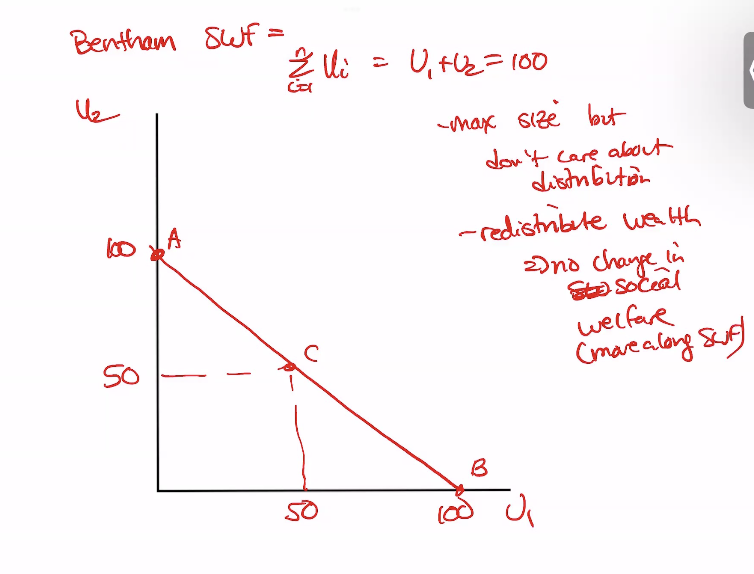 Bentham SWF =
n
Σ Ui = U1+U2 = 100
i=1
U2
-max size but
don't care about
distribution
-redistribute wealth
=> no change in
social
welfare
(move along SWF)
100 A
C
50
B
50 100 U1